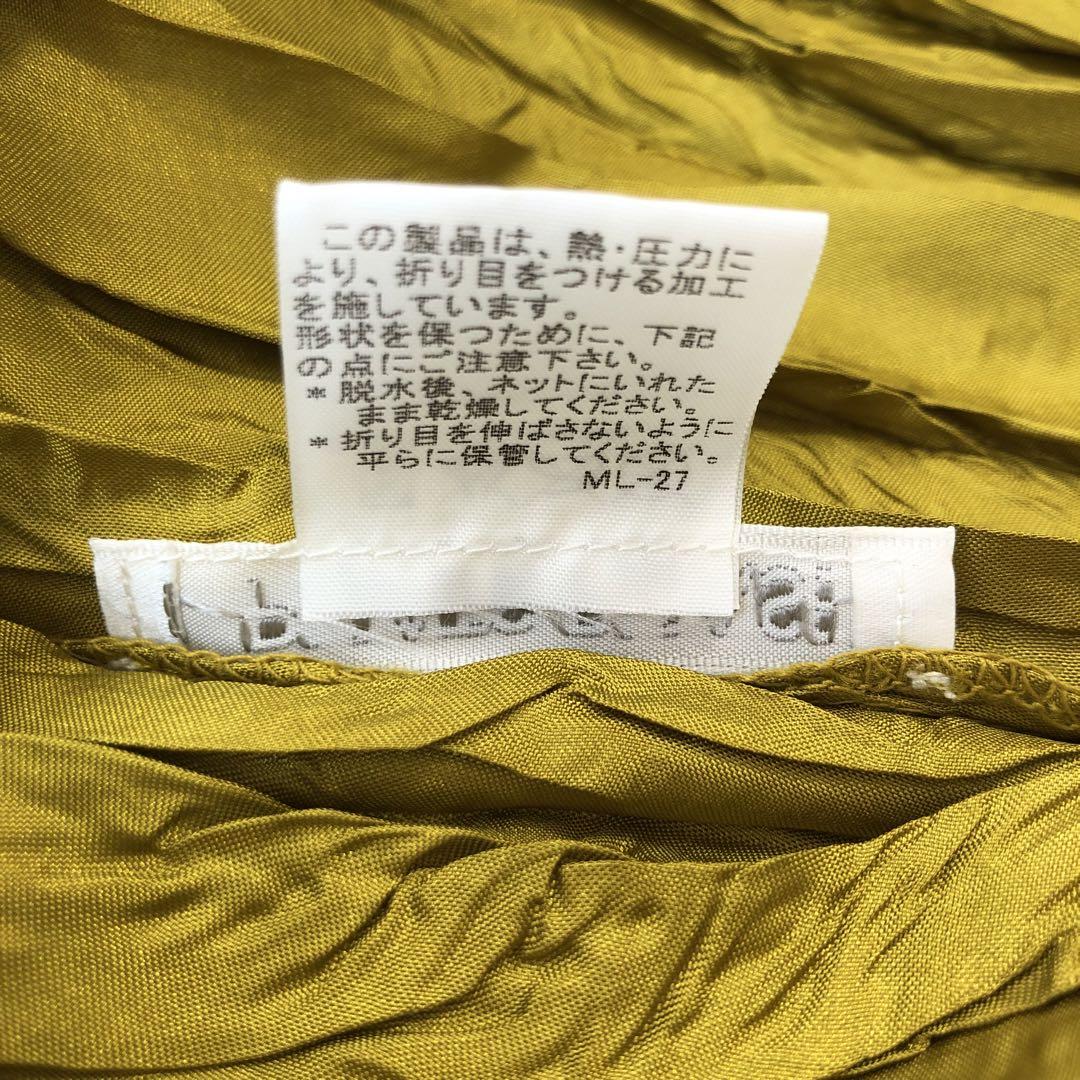 この製品は、熱・圧力に
より、折り目をつける加工
を施しています。
形状を保つために、下記
の点にご注意下さい。
* 脱水後、ネットにいれた
まま乾燥してください。
* 折り目を伸ばさないように
平らに保管してください。
ML-27